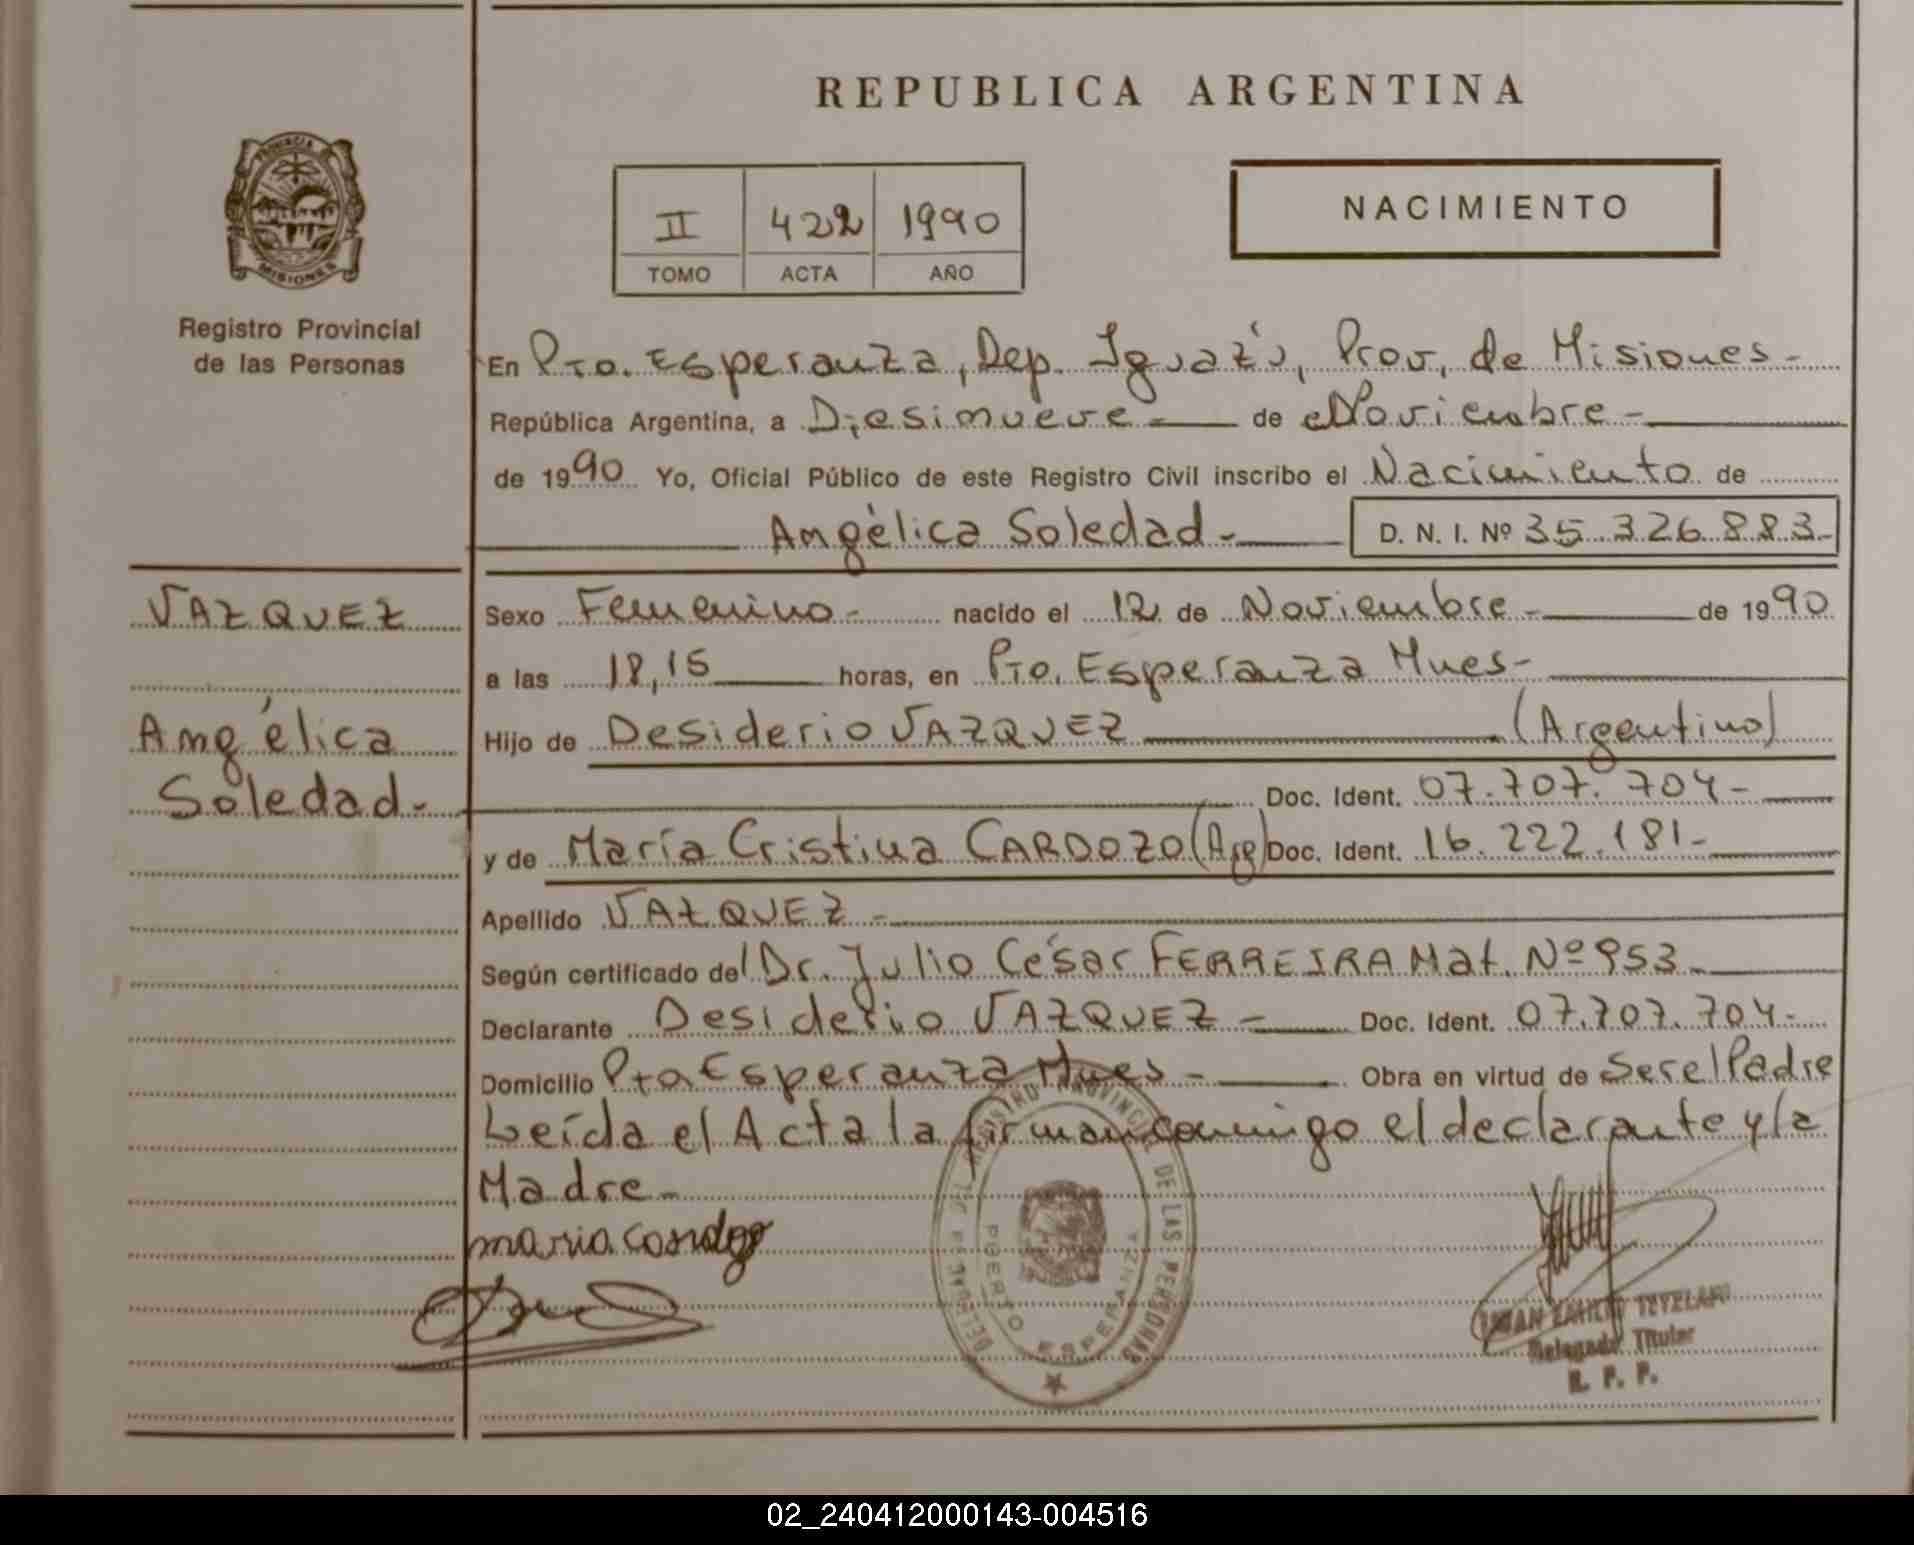 REPUBLICA ARGENTINA
PROVINCIA DE
MISIONES
Registro Provincial
de las Personas
II 422 1990
TOMO ACTA AÑO
NACIMIENTO
En Pto. Esperanza, Dep. Iguazú, Prov. de Misiones-
República Argentina, a Diesinueve- de Noviembre-
de 1990 Yo, Oficial Público de este Registro Civil inscribo el Nacimiento de
Angélica Soledad- D. N. I. Nº 35.326.883-
VAZQUEZ
Angélica
Soledad-
Sexo Femenino- nacido el 12 de Noviembre- de 1990
a las 18,15 horas, en Pto. Esperanza Mnes-
Hijo de Desiderio VAZQUEZ (Argentino)
Doc. Ident. 07.707.704-
y de María Cristina CARDOZO (Arg) Doc. Ident. 16.222.181-
Apellido VAZQUEZ-
Según certificado del Dr. Julio César FERREIRA Mat. Nº 953-
Declarante Desiderio VAZQUEZ- Doc. Ident. 07.707.704-
Domicilio Pto Esperanza Mnes- Obra en virtud de Ser el Padre
Leída el Acta la firman conmigo el declarante y la
Madre-
maria cardozo
REGISTRO PROVINCIAL DE LAS PERSONAS
PUERTO ESPERANZA
Delegado Titular
R. P. P.
02_240412000143-004516